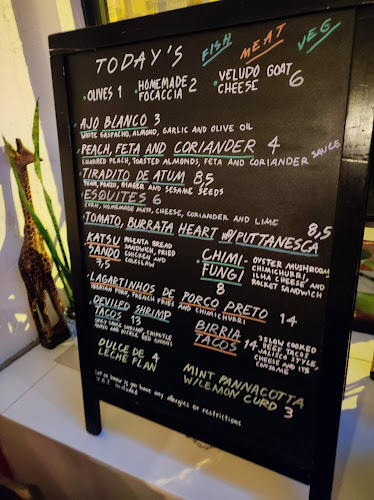 TODAY'S FISH MEAT VEG
• OLIVES 1
• HOMEMADE FOCACCIA 2
• VELUDO GOAT CHEESE 6
• AJO BLANCO 3
WHITE GASPACHO, ALMOND, GARLIC AND OLIVE OIL
• PEACH, FETA AND CORIANDER 4
CHARRED PEACH, TOASTED ALMONDS, FETA AND CORIANDER SAUCE
TIRADITO DE ATUM 8,5
PONZU, GINGER AND SESAME SEEDS
ESQUITES 6
CORN, HOMEMADE MAYO, CHEESE, CORIANDER AND LIME
TOMATO, BURRATA HEART W/ PUTTANESCA 8,5
KATSU SANDO 9,5
BREAD
SANDWICH, FRIED
CHICKEN AND
COLESLAW
CHIMI-FUNGI 8
OYSTER MUSHROOM,
CHIMICHURRI,
ILHA CHEESE AND
ROCKET SANDWICH
• LAGARTINHOS DE PORCO PRETO 14
IBERIAN PORK, FRENCH FRIES AND CHIMICHURRI
DEVILED SHRIMP TACOS 13
SHRIMP, CHIPOTLE
MAYO AND PICKLE RED ONIONS
BIRRIA TACOS 14
SLOW COOKED
BEEF TACOS
JALISCO STYLE,
CHEESE AND ITS
CONSOMÉ
DULCE DE LECHE FLAN 4
MINT PANNACOTTA W/LEMON CURD 3
Let us know if you have any allergies or restrictions
VAT included